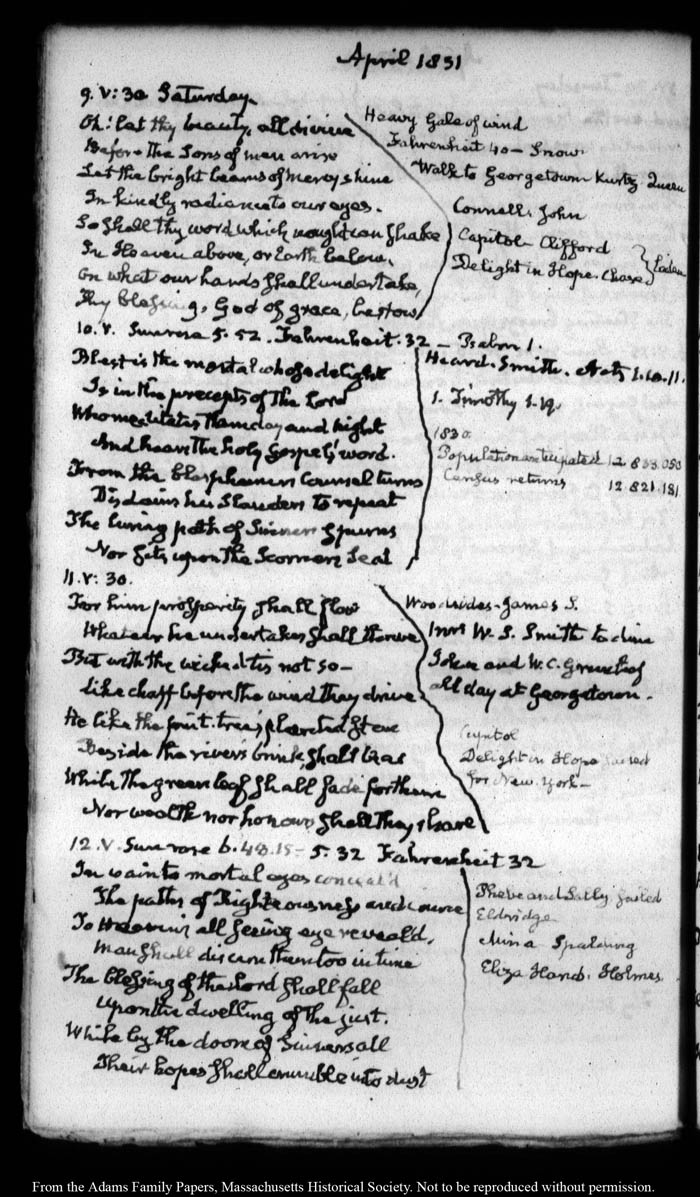 April 1831
9. V: 30 Saturday
Oh! let thy beauty, all divine
Before the Sons of men arise
Let the bright beams of mercy shine
In kindly radiance to our eyes.
So shall thy word which nought can shake
In Heaven above, or Earth below,
On what our hands shall undertake,
Thy blessing, God of grace, bestow
Heavy Gale of wind
Fahrenheit 40 — Snow
Walk to Georgetown Kurtz. Queen
Connell. John
Capitol — Clifford
Delight in Hope. Chase
10. V. Sunrose 5. 52. Fahrenheit. 32 — Psalm 1.
Blest is the mortal whose delight
Is in the precepts of the Lord
Who meditates them day and night
And hears the holy Gospel's word.
From the blasphemers Counsel turns
Disdains his Slanders to repeat
The luring path of Sinners spurns
Nor sits upon the Scorners Seat
Heard. Smith. Acts 1. 10. 11.
1. Timothy 1. 19.
1830.
Population anticipated 12 833.050
Census returns 12 821.181
11. V: 30.
For him prosperity shall flow
Whate'er he undertakes shall thrive
But with the wicked tis not so —
Like chaff before the wind they drive
He like the fruit-tree, planted
Beside the rivers brink, shall bear
While the green leaf shall fade for them
Nor wealth nor honours shall they share
Woodsides — James S.
W. S. Smith to dine
and W. C. Greenleaf
all day at Georgetown.
Capitol
Delight in Hope sailed
for New York —
12. V. Sun rose 6. 48. 15 — 5. 32 Fahrenheit 32
In vain to mortal eyes conceal'd
The paths of Righteousness and
To Heaven's all seeing eye reveal'd.
Man shall discern them too in time
The blessing of the Lord shall fall
Upon the dwelling of the just.
While by the doom of Sinners all
Their hopes shall crumble into dust
Phebe and Sally sailed
Eldridge
Mina Spalding
Eliza Hand. Holmes.
From the Adams Family Papers, Massachusetts Historical Society. Not to be reproduced without permission.